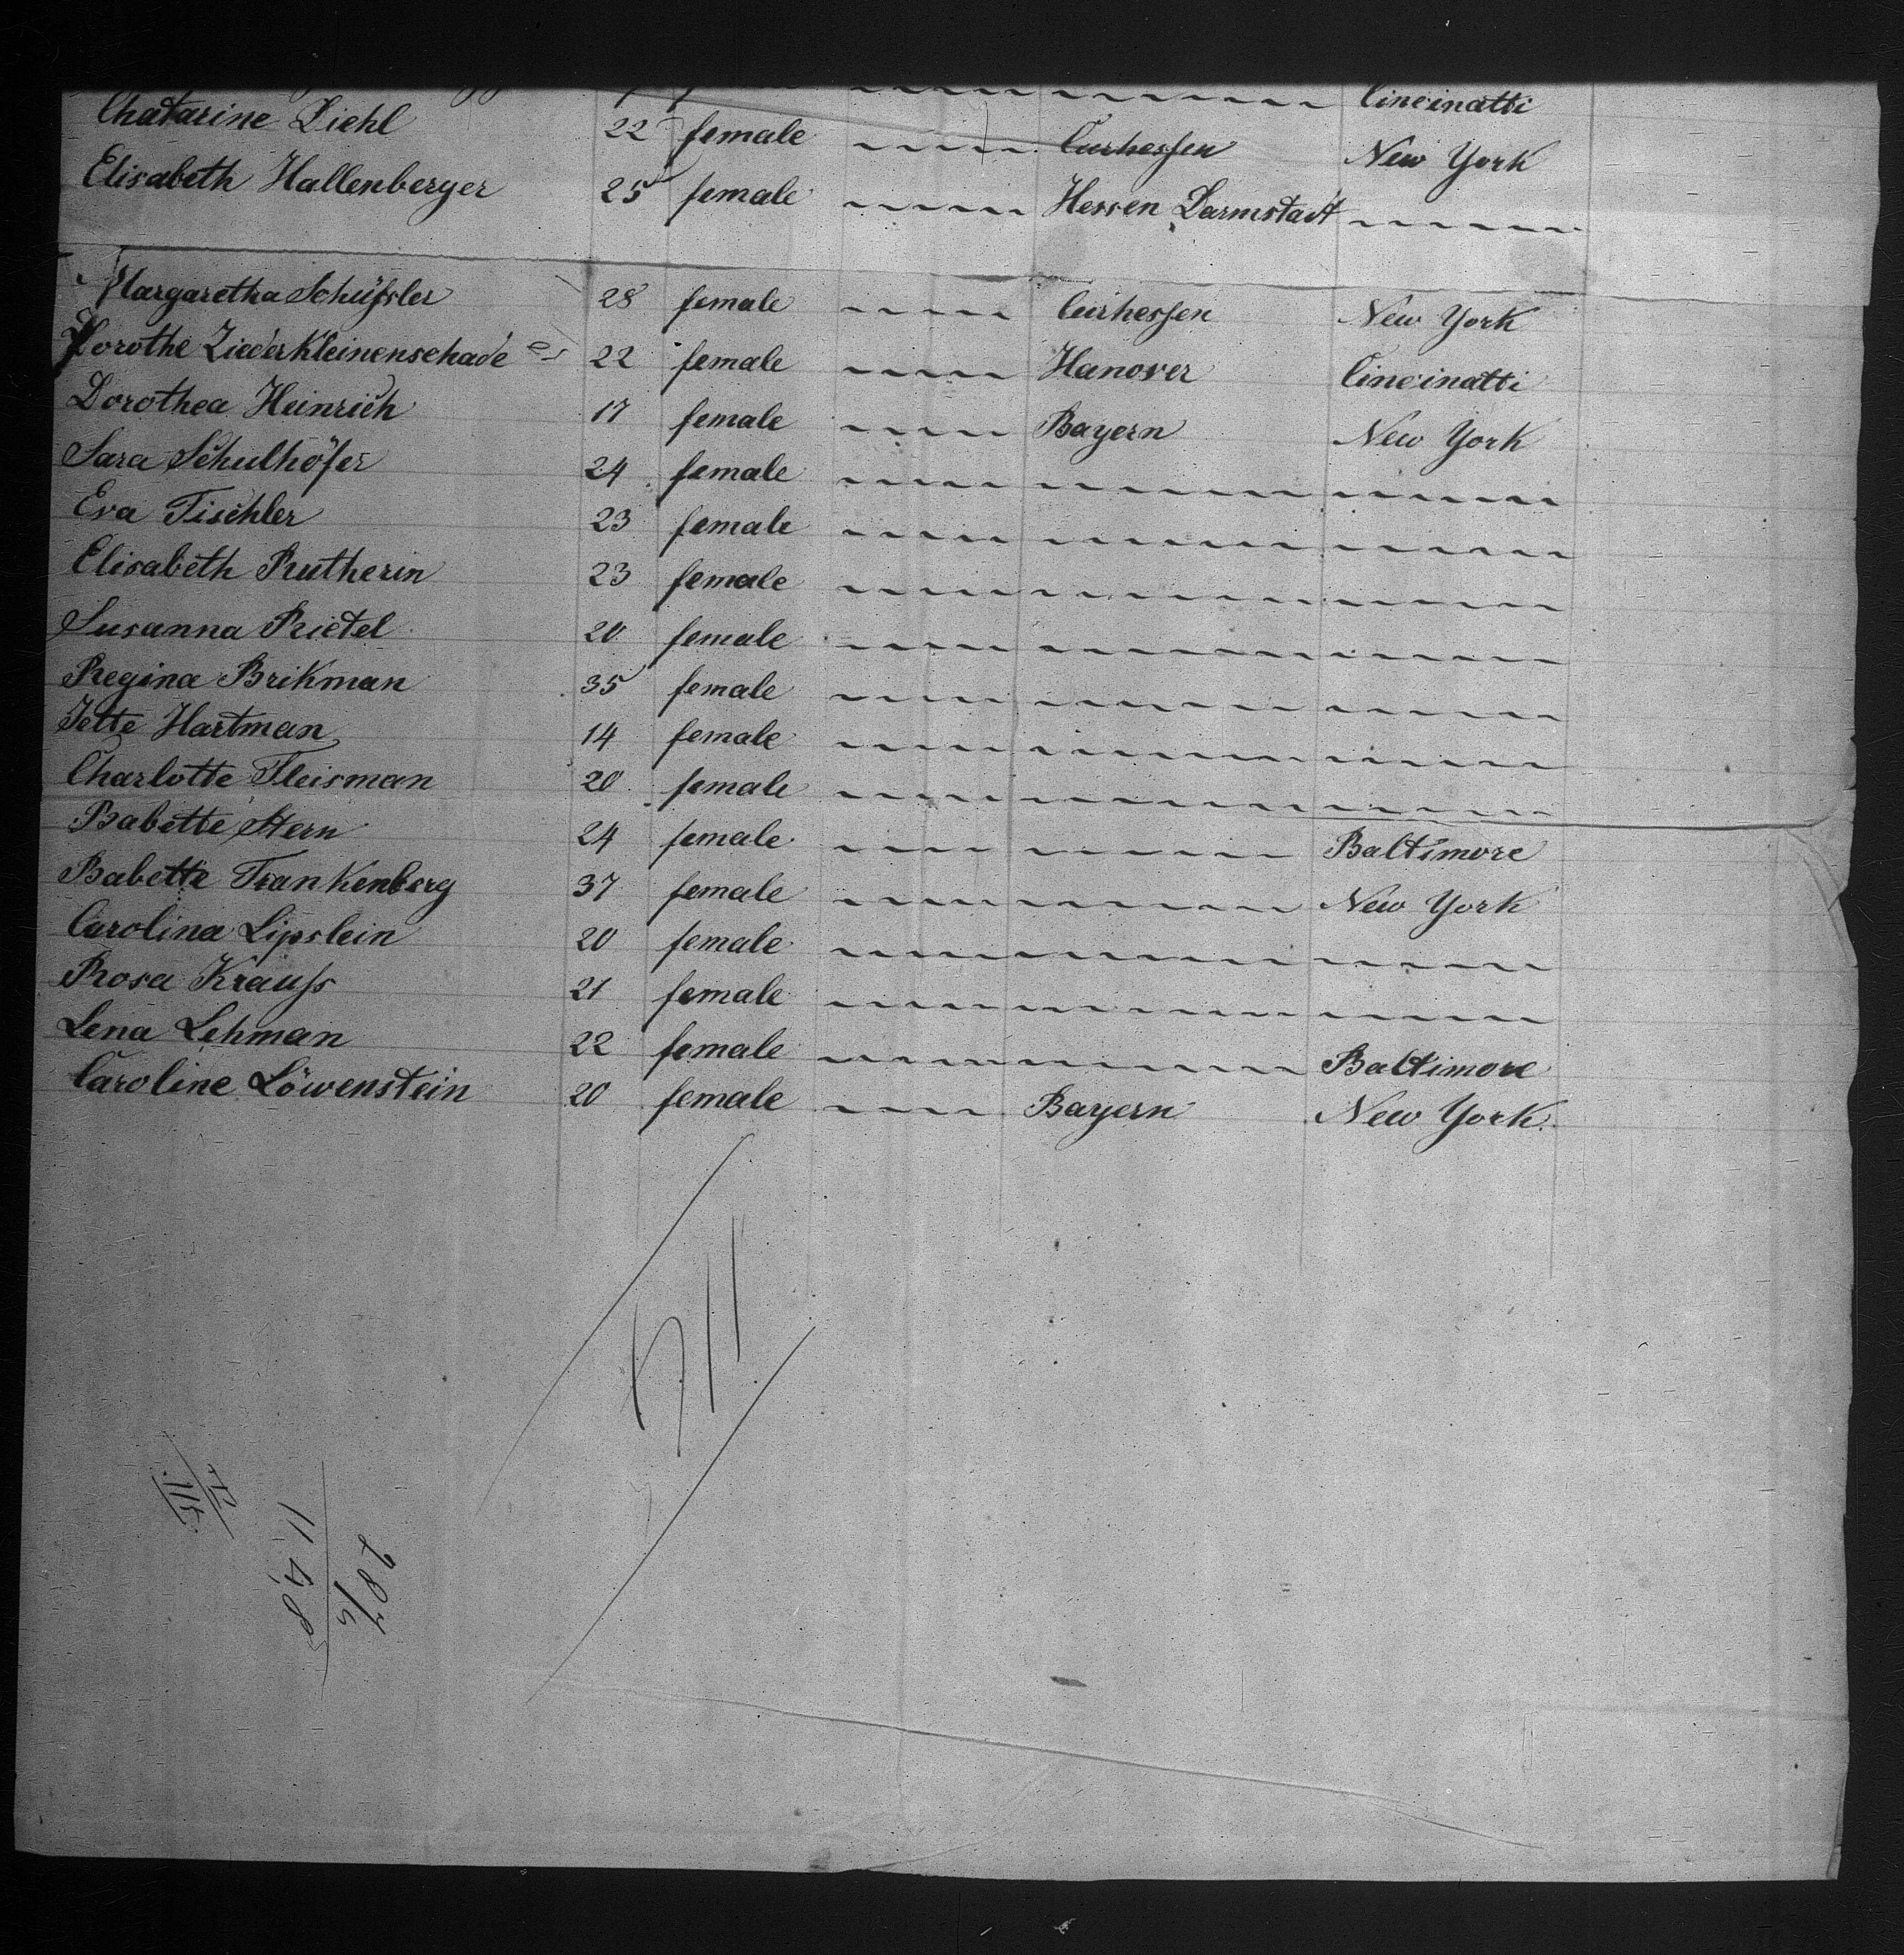 Cincinatti
Chatarine Diehl 22 female Curhessen New York
Elisabeth Hallenberger 25 female Hessen Darmstadt
Margaretha Schüssler 28 female Curhessen New York
Dorothe ZiederKleinenschade 22 female Hanover Cincinatti
Dorothea Heinrich 17 female Bayern New York
Sara Schulhöfer 24 female
Eva Tischler 23 female
Elisabeth Rutherin 23 female
Susanna Rietel 20 female
Regina Brikman 35 female
Jette Hartman 14 female
Charlotte Fleisman 20 female
Babette Stern 24 female Baltimore
Babette Frankenberg 37 female New York
Carolina Lipslein 20 female
Rosa Krauss 21 female
Lena Lehman 22 female Baltimore
Caroline Löwenstein 20 female Bayern New York.